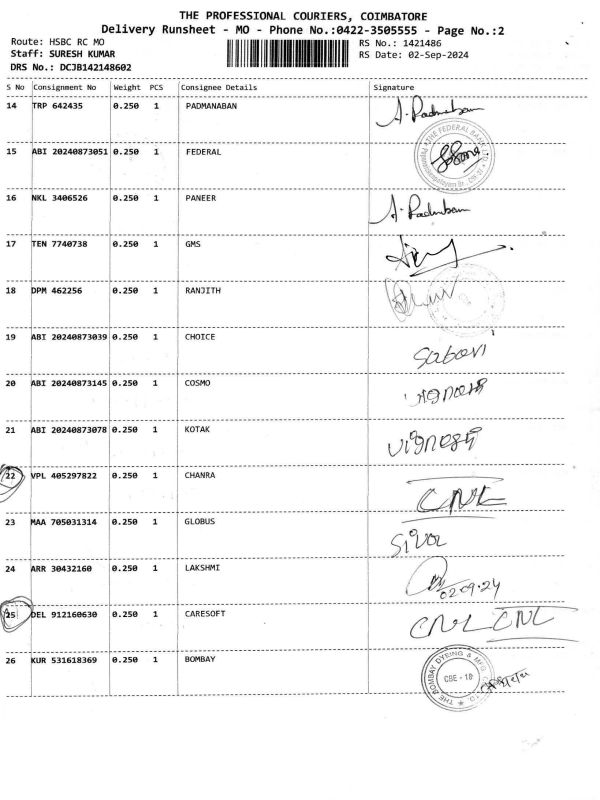 THE PROFESSIONAL COURIERS, COIMBATORE
Delivery Runsheet - MO - Phone No.:0422-3505555 - Page No.:2
Route: HSBC RC MO
RS No.: 1421486
Staff: SURESH KUMAR
RS Date: 02-Sep-2024
DRS No.: DCJB142148602
S No Consignment No Weight PCS Consignee Details Signature
14 TRP 642435 0.250 1 PADMANABAN A. Padmanabam
15 ABI 20240873051 0.250 1 FEDERAL
THE FEDERAL BANK LTD.
16 NKL 3406526 0.250 1 PANEER A. Padmnbam
17 TEN 7740738 0.250 1 GMS
18 DPM 462256 0.250 1 RANJITH
19 ABI 20240873039 0.250 1 CHOICE Sabari
20 ABI 20240873145 0.250 1 COSMO
21 ABI 20240873078 0.250 1 KOTAK
22 VPL 405297822 0.250 1 CHANRA CNL
23 MAA 705031314 0.250 1 GLOBUS Siva
24 ARR 30432160 0.250 1 LAKSHMI 02.09.24
25 DEL 912160630 0.250 1 CARESOFT CNL CNL
26 KUR 531618369 0.250 1 BOMBAY
THE BOMBAY DYEING & MFG. CO. LTD.
CBE - 18